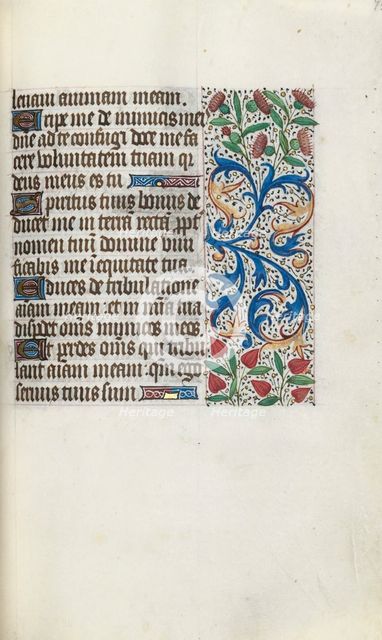 levavi animam meam.
Eripe me de inimicis mei
dñe ad te confugi doce me fa
cere voluntatem tuam qr
deus meus es tu
Spiritus tuus bonus de
ducet me in terra recta ppt
nomen tuū domine vivi
ficabis me ī equitate tua.
Educes de tribulatione
aīam meam: et in mīa tua
disperdes oīns inimicos meos
Et perdes oīns qui tribu
lant aīam meam: qm̄ ego
servus tuus sum
heritage
Heritage
heritage